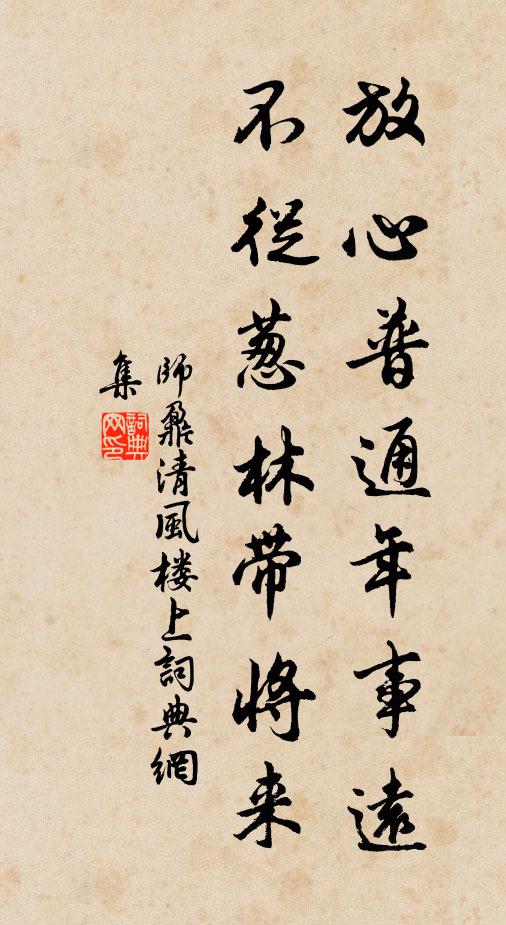 放心普通年事遠
不從葱林帶將来
師鼐清風楼上詞典網
集
詞典网印